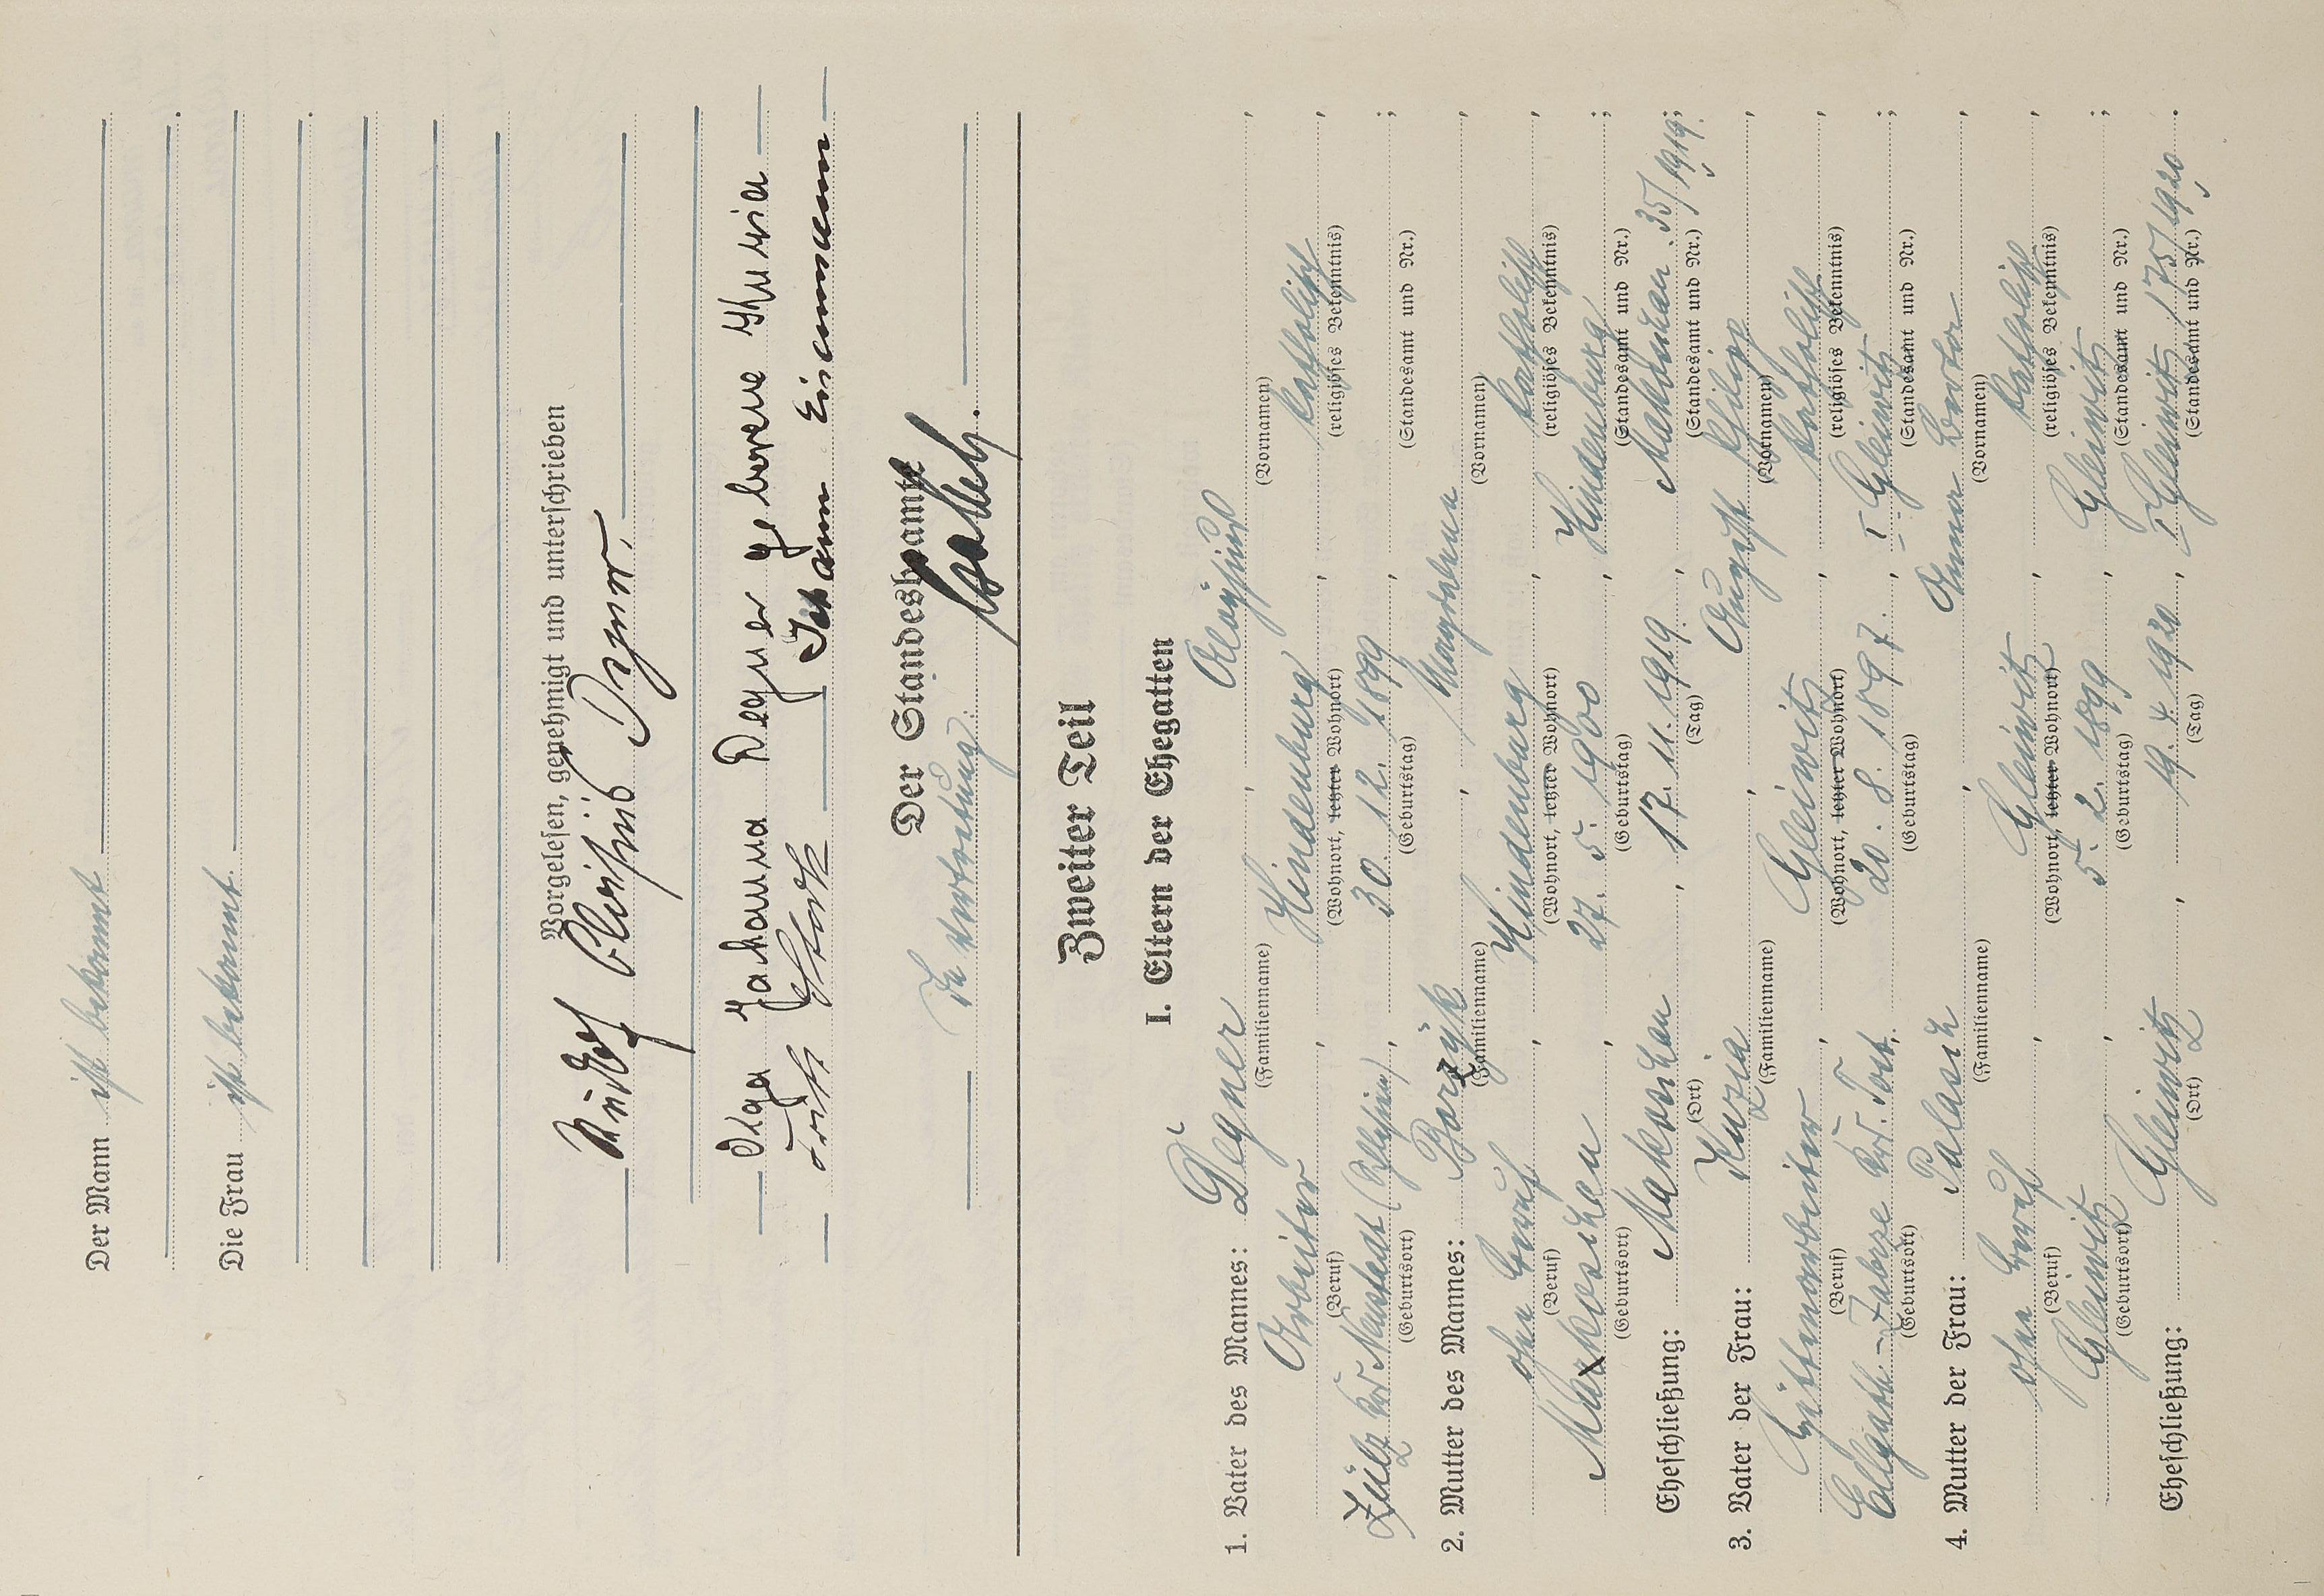 Der Mann ist bekannt
Die Frau ist bekannt.
Vorgelesen, genehmigt und unterschrieben
Aloisius Degner.
Olga Johanna Degner geborene Kusia
Johann Eisermann
Der Standesbeamte
In Vertretung:
Zweiter Teil
I. Eltern der Ehegatten
1. Vater des Mannes: Degner, Aloysius,
(Familienname) (Vornamen)
Arbeiter, Hindenburg, katholisch,
(Beruf) (Wohnort, letzter Wohnort) (religiöses Bekenntnis)
Zülz Kr. Neustadt (Schlesien), 30. 12. 1899;
(Geburtsort) (Geburtstag) (Standesamt und Nr.)
2. Mutter des Mannes: Borzyk, Magdalena,
(Familienname) (Vornamen)
ohne Beruf, Hindenburg, katholisch,
(Beruf) (Wohnort, letzter Wohnort) (religiöses Bekenntnis)
Makoschau, 27. 5. 1900, Hindenburg;
(Geburtsort) (Geburtstag) (Standesamt und Nr.)
Eheschließung: Makoschau, 17. 11. 1919, Makoschau 35/1919;
(Ort) (Tag) (Standesamt und Nr.)
3. Vater der Frau: Kuzia, August Philipp,
(Familienname) (Vornamen)
Hüttenarbeiter, Gleiwitz, katholisch,
(Beruf) (Wohnort, letzter Wohnort) (religiöses Bekenntnis)
Ellguth-Zabrze Kr. Tost, 20. 8. 1897, I Gleiwitz;
(Geburtsort) (Geburtstag) (Standesamt und Nr.)
4. Mutter der Frau: Palasik, Anna Berta,
(Familienname) (Vornamen)
ohne Beruf, Gleiwitz, katholisch,
(Beruf) (Wohnort, letzter Wohnort) (religiöses Bekenntnis)
Gleiwitz, 5. 2. 1899, Gleiwitz;
(Geburtsort) (Geburtstag) (Standesamt und Nr.)
Eheschließung: Gleiwitz, 19. 4. 1920, I Gleiwitz 175/1920.
(Ort) (Tag) (Standesamt und Nr.)